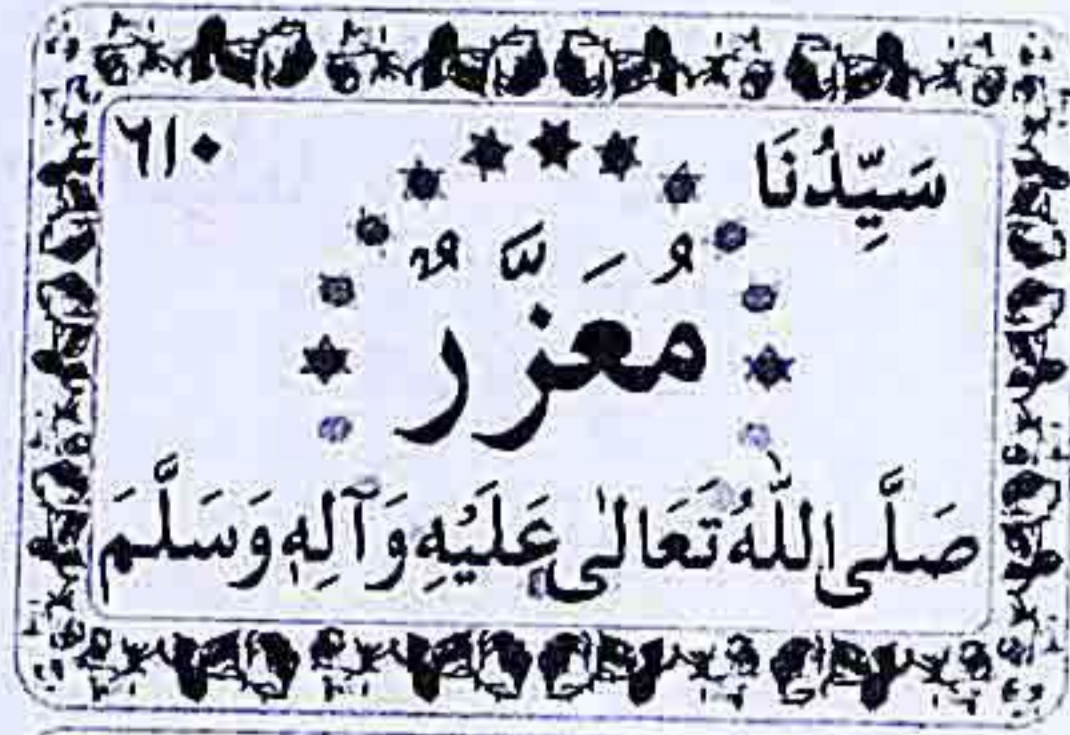 سَيِّدُنَا ٦١٠
مُعَزَّرٌ
صَلَّى اللّٰهُ تَعَالٰى عَلَيْهِ وَآلِهٖ وَسَلَّمَ